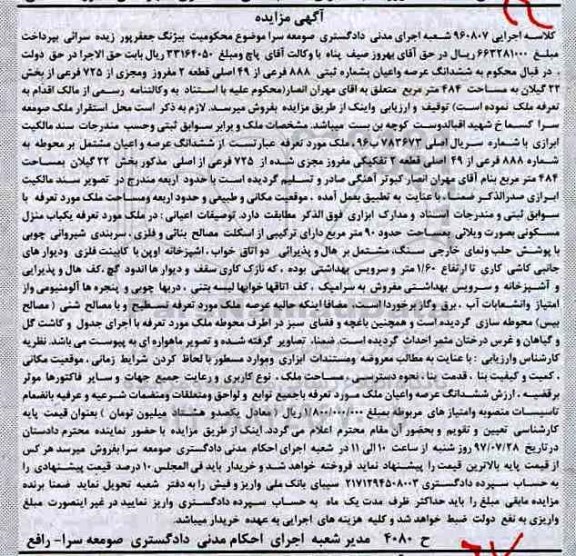 آگهی مزایده
کلاسه اجرایی ۹۶۰۸۰۷ شعبه اجرای مدنی دادگستری صومعه سرا موضوع محکومیت بیژنگ جعفرپور زیده سرائی بپرداخت
مبلغ ۶۶۳۲۸۱۰۰۰ ریال در حق آقای بهروز صیف پناه با وکالت آقای پاچ ومبلغ ۳۳۱۶۴۰۵۰ ریال بابت حق الاجرا در حق دولت
. در قبال محکوم به ششدانگ عرصه واعیان بشماره ثبتی ۸۸۸ فرعی از ۴۹ اصلی قطعه ۲ مفروز ومجزی از ۷۲۵ فرعی از بخش
۲۲ گیلان به مساحت ۴۸۴ متر مربع متعلق به آقای مهران انصار(محکوم علیه با استناد به وکالتنامه رسمی از مالک اقدام به
تعرفه ملک نموده است) توقیف و ارزیابی واینک از طریق مزایده بفروش میرسد. لازم به ذکر است محل استقرار ملک صومعه
سرا کسما خ شهید اقبالدوست کوچه بن بست میباشد. مشخصات ملک و برابر سوابق ثبتی وحسب مندرجات سند مالکیت
ابرازی با شماره سریال اصلی ۷۸۳۶۷۳ ب۹۶، ملک مورد تعرفه عبارتست از ششدانگ عرصه و اعیان مشتمل بر محوطه به
شماره ۸۸۸ فرعی از ۴۹ اصلی قطعه ۲ تفکیکی مفروز مجزی شده از ۷۲۵ فرعی از اصلی مذکور بخش ۲۲ گیلان بمساحت
۴۸۴ متر مربع بنام آقای مهران انصار کبوتر آهنگی صادر و تسلیم گردیده است با حدود اربعه مندرج در تصویر سند مالکیت
ابرازی صدرالذکر ضمنا، با عنایت به تطبیق بعمل آمده ، موقعیت مکانی و طبیعی و حدود اربعه ومساحت ملک مورد تعرفه با
سوابق ثبتی و مندرجات اسناد و مدارک ابرازی فوق الذکر مطابقت دارد. توصیفات اعیانی : در ملک مورد تعرفه یکباب منزل
مسکونی بصورت ویلائی بمساحت حدود ۹۰ متر مربع دارای ترکیبی از اسکلت مصالح بنائی و فلزی ، سربندی شیروانی چوبی
با پوشش حلب ونمای خارجی سنگ، مشتمل بر هال و پذیرائی دو اتاق خواب ، آشپزخانه اوپن با کابینت فلزی ودیوار های
جانبی کاشی کاری تا ارتفاع ۱/۶۰ متر و سرویس بهداشتی بوده ، که نازک کاری سقف و دیوار ها اندود گچ ،کف هال و پذیرایی
و آشپزخانه و سرویس بهداشتی مفروش به سرامیک ، کف اتاقها خوابها لیسه بتنی ، دربها چوبی و پنجره ها آلومنیومی واز
امتیاز وانشعابات آب ، برق وگاز برخوردا است. مضافا اینکه حالیه عرصه ملک مورد تعرفه تسطیح و با مصالح شنی ( مصالح
بیس) محوطه سازی گردیده است و همچنین باغچه و فضای سبز در اطرف محوطه ملک مورد تعرفه با اجرای جدول و کاشت گل
و گیاهان و غرس درختان مثمر احداث گردیده است. ضمنا، تصاویر گرفته شده و تصویر ماهواره ای به پیوست می باشد. نظریه
کارشناس وارزیابی : با عنایت به مطالب معروضه ومستندات ابرازی وموارد مسطور با لحاظ کردن شرایط زمانی ، موقعیت مکانی
، کمیت و کیفیت بنا ، قدمت بنا ، نحوه دسترسی ، مساحت ملک ، نوع کاربری و رعایت جمیع جهات و سایر فاکتورها موثر
برقضیه ، ارزش ششدانگ عرصه واعیان ملک مورد تعرفه باجمیع توابع و لواحق ومتعلقات ومنضمات شرعیه و عرفیه بانضمام
تاسیسات منصوبه وامتیاز های مربوطه بمبلغ ۱/۸۰۰/۰۰۰/۰۰۰ ریال ( معادل یکصدو هشتاد میلیون تومان ) بعنوان قیمت پایه
کارشناسی تعیین و تقویم و بحضور آن مقام محترم اعلام می گردد. اینک از طریق مزایده با حضور نماینده محترم دادستان
در تاریخ ۹۷/۰۷/۲۸ روز شنبه از ساعت ۱۰ الی ۱۱ در شعبه اجرای احکام مدنی دادگستری صومعه سرا بفروش میرسد هر کس
از قیمت پایه بالاترین قیمت را پیشنهاد نماید فروخته خواهد شد و خریدار باید فی المجلس ۱۰ درصد قیمت پیشنهادی را
به حساب سپرده دادگستری ۲۱۷۱۲۹۴۵۰۸۰۰۳ سیبای بانک ملی واریز و فیش را به دفتر شعبه تحویل نماید ضمنا برنده
مزایده مابقی مبلغ را باید حداکثر ظرف مدت یک ماه به حساب سپرده دادگستری واریز نمایید در غیر اینصورت مبلغ
واریزی به نفع دولت ضبط خواهد شد و کلیه هزینه های اجرایی به عهده خریدار میباشد.
ح ۴۰۸۰ مدیر شعبه اجرای احکام مدنی دادگستری صومعه سرا- رافع